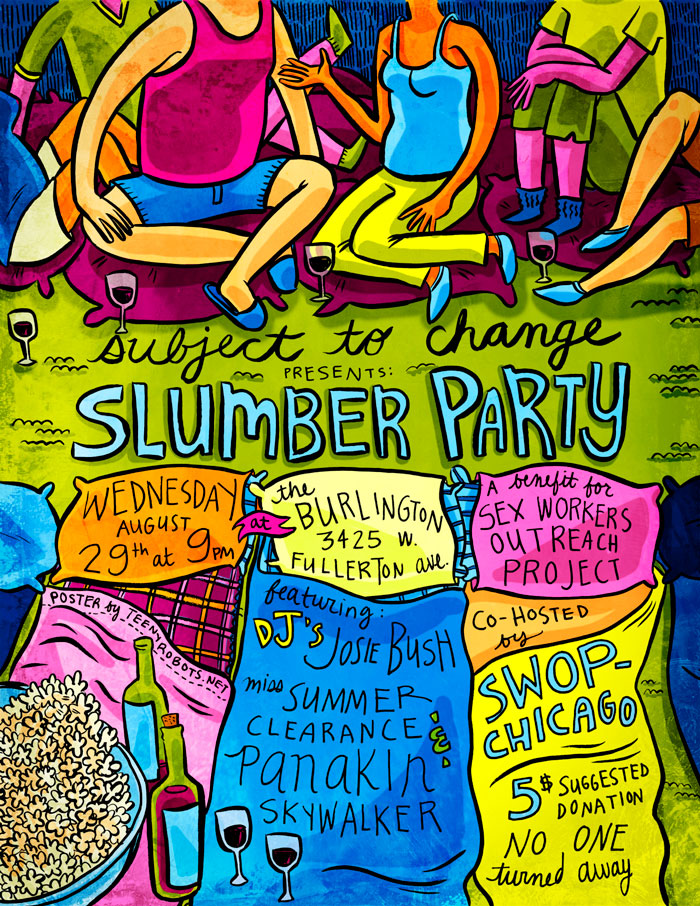 subject to change
PRESENTS:
SLUMBER PARTY
WEDNESDAY
AUGUST
29th at 9PM
at
the
BURLINGTON
3425 W.
FULLERTON ave.
A benefit for
SEX WORKERS
OUTREACH
PROJECT
POSTER by TEENYROBOTS.NET
featuring:
DJ's JOSIE BUSH
miss SUMMER
CLEARANCE &
PANAKIN
SKYWALKER
CO-HOSTED
by
SWOP-
CHICAGO
5$ SUGGESTED
DONATION
NO ONE
turned away